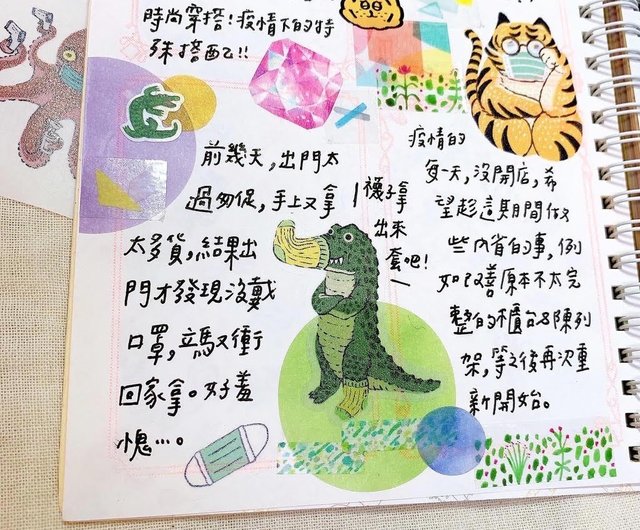 時尚穿搭!疫情下的特
殊搭配!!
前幾天,出門太
過匆促,手上又拿
太多貨,結果出
門才發現沒戴
口罩,立馬又衝
回家拿。好羞
愧…。
襪子拿
出來
套吧!
疫情的
每一天,沒開店,希
望趁這期間做
些內省的事,例
如改善原本不太完
整的櫃台&陳列
架,等之後再次重
新開始。